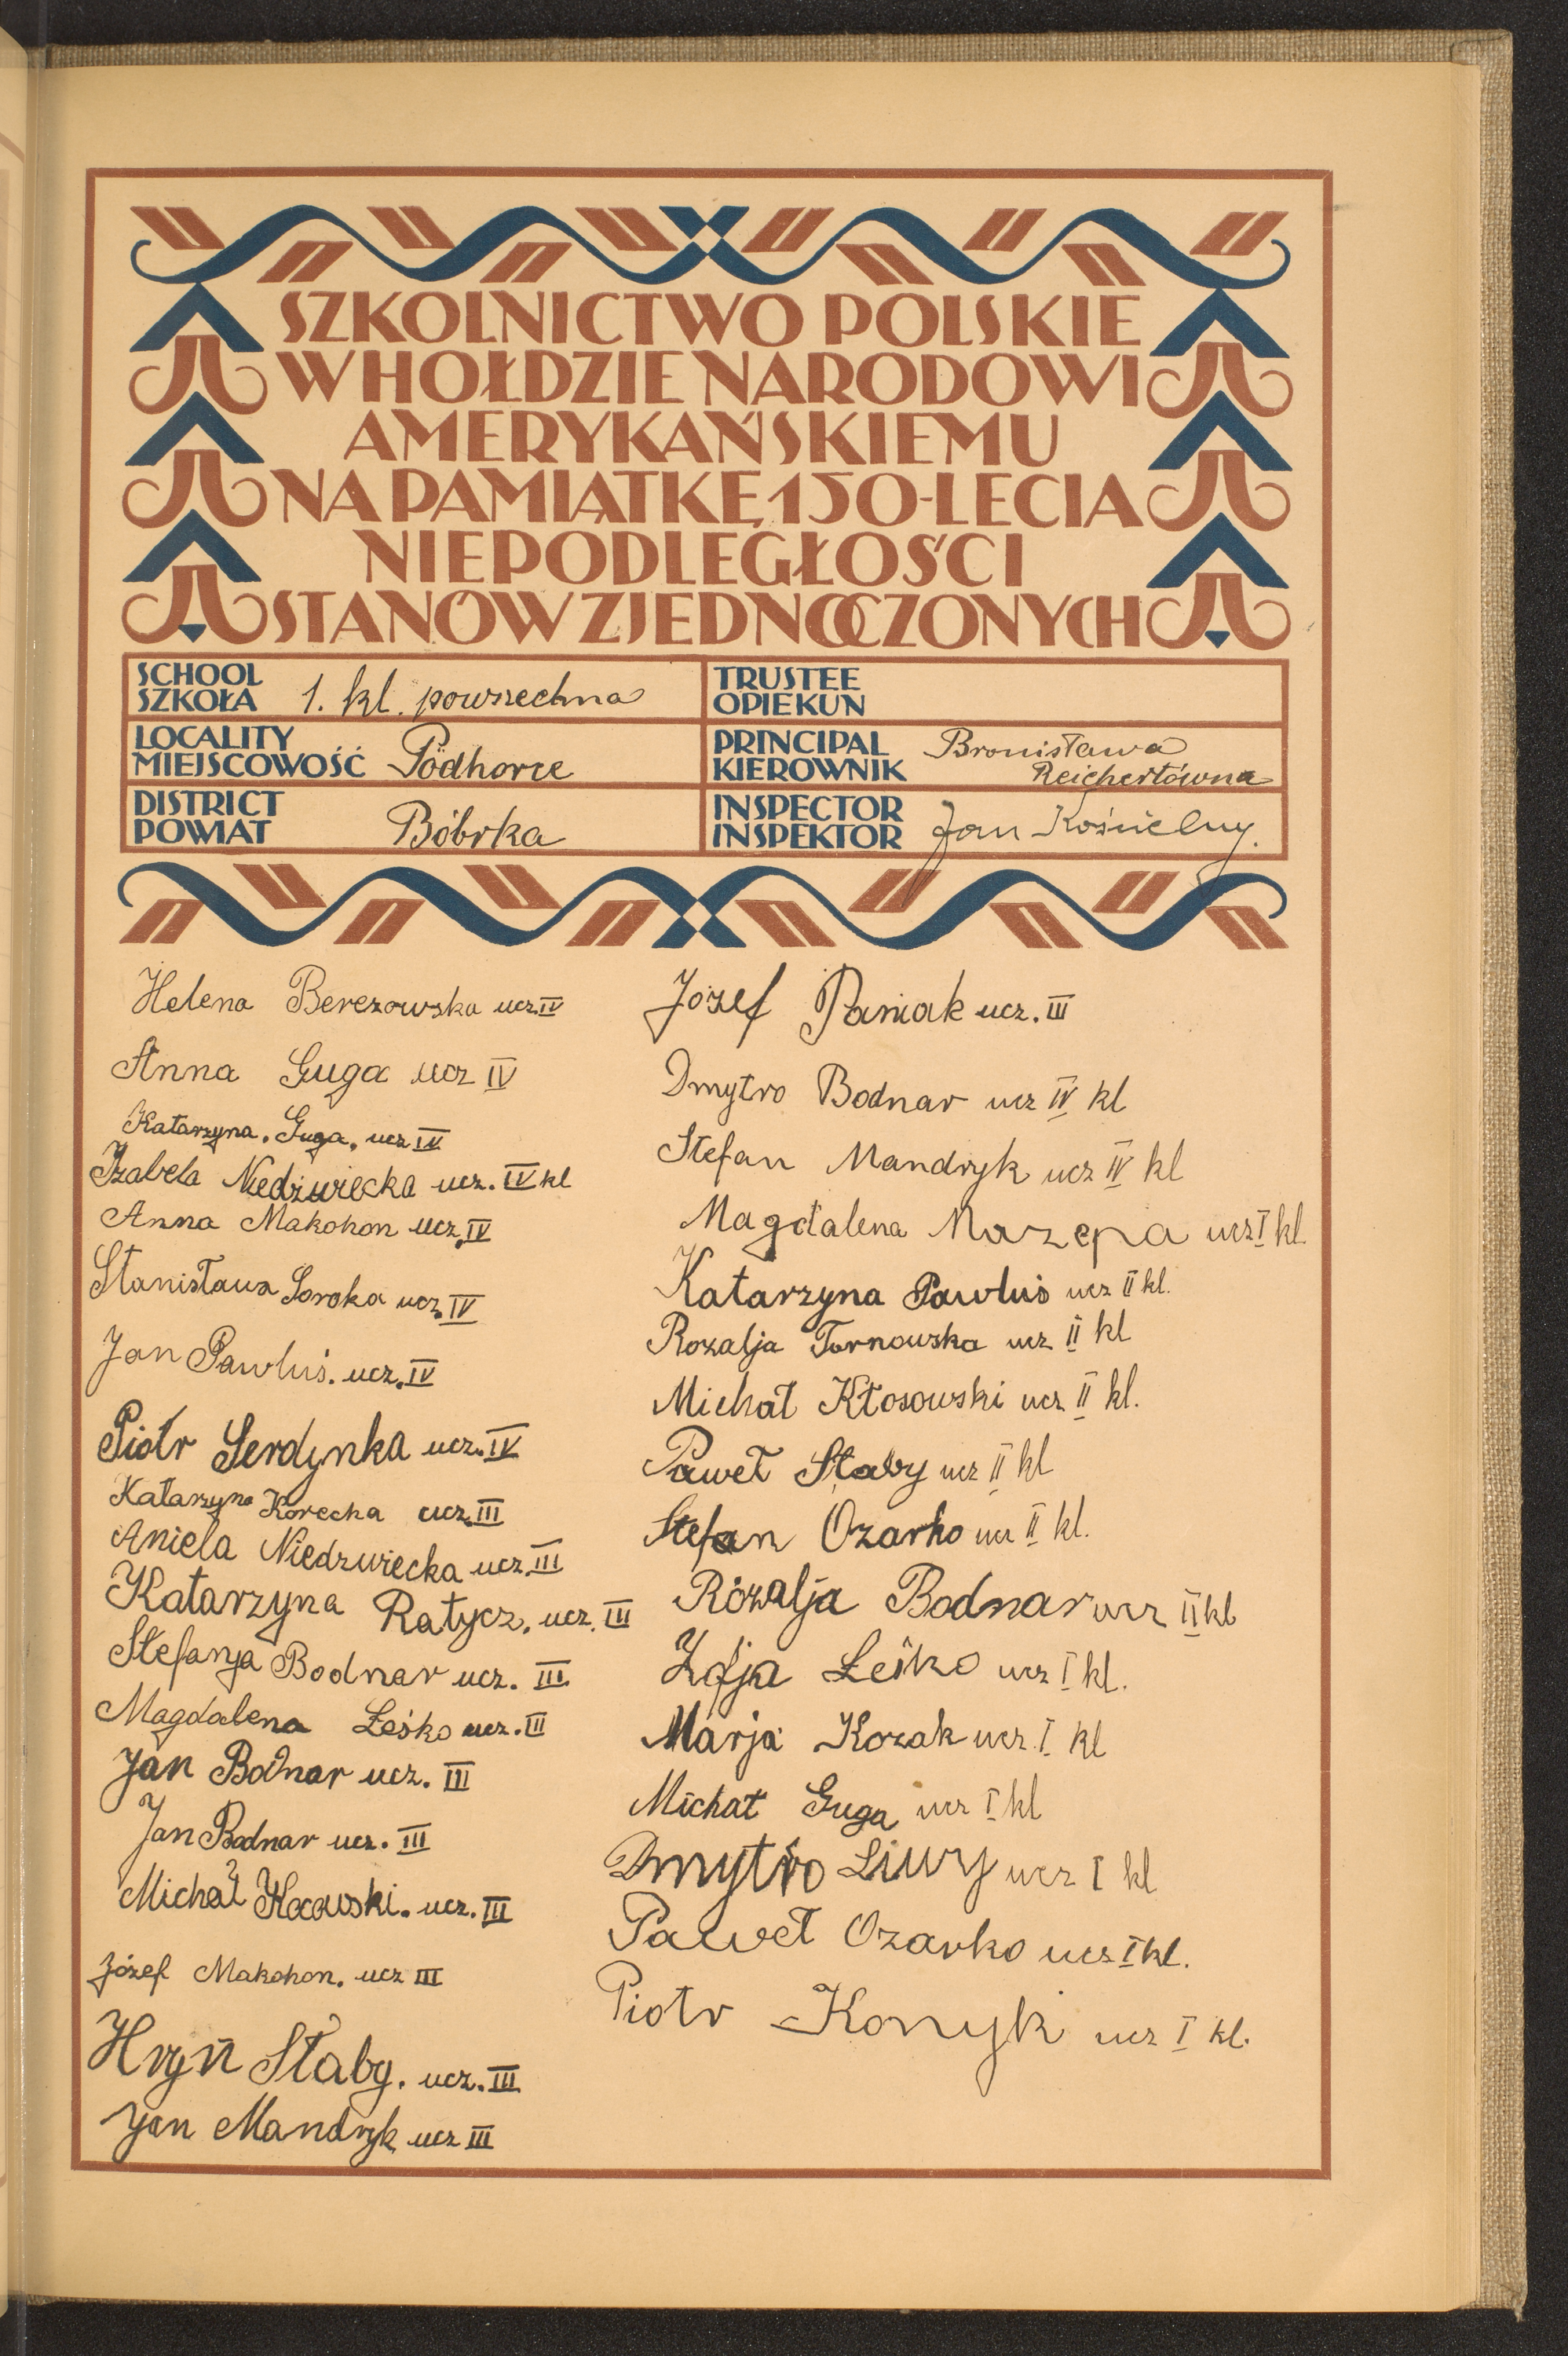 SZKOLNICTWO POLSKIE
W HOŁDZIE NARODOWI
AMERYKAŃSKIEMU
NA PAMIĄTKĘ 150-LECIA
NIEPODLEGŁOŚCI
STANÓW ZJEDNOCZONYCH
SCHOOL
SZKOŁA 1. kl. powszechna
TRUSTEE
OPIEKUN
LOCALITY
MIEJSCOWOŚĆ Podhorce
PRINCIPAL
KIEROWNIK Bronisława
Reichertówna
DISTRICT
POWIAT Bóbrka
INSPECTOR
INSPEKTOR Jan Kościelny.
Helena Berezowska ucz. IV
Anna Guga ucz IV
Katarzyna. Guga. ucz IV
Izabela Niedźwiecka ucz. IV kl
Anna Makohon ucz. IV
Stanisława Soroka ucz. IV
Jan Pawluś. ucz. IV
Piotr Serdynka ucz. IV
Katarzyna Korecka ucz. III
Aniela Niedzwiecka ucz. III
Katarzyna Ratycz. ucz. III
Stefanja Bodnar ucz. III.
Magdalena Leśko ucz. III
Jan Bodnar ucz. III
Jan Bodnar ucz. III
Michał ucz. III
Józef Makohon. ucz III
Hryń Słaby. ucz. III
Jan Mandryk ucz III
Józef Paniak ucz. III
Dmytro Bodnar ucz IV kl
Stefan Mandryk ucz IV kl
Magdalena Mazepa ucz I kl.
Katarzyna Pawluś ucz II kl.
Rozalja Tarnowska ucz II kl
Michał Kłosowski ucz II kl.
Paweł Słaby ucz II kl
Stefan Ozarko ucz II kl.
Rózalja Bodnar ucz II kl
Zofja Leśko ucz I kl.
Marja Kozak ucz. I kl
Michał Guga ucz I kl
Dmytro Liwy ucz I kl
Paweł Ozarko ucz I kl.
Piotr Konyk ucz I kl.